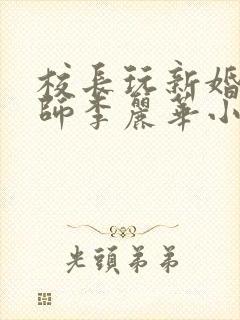 校長玩新婚
師李麗華小
光頭弟弟